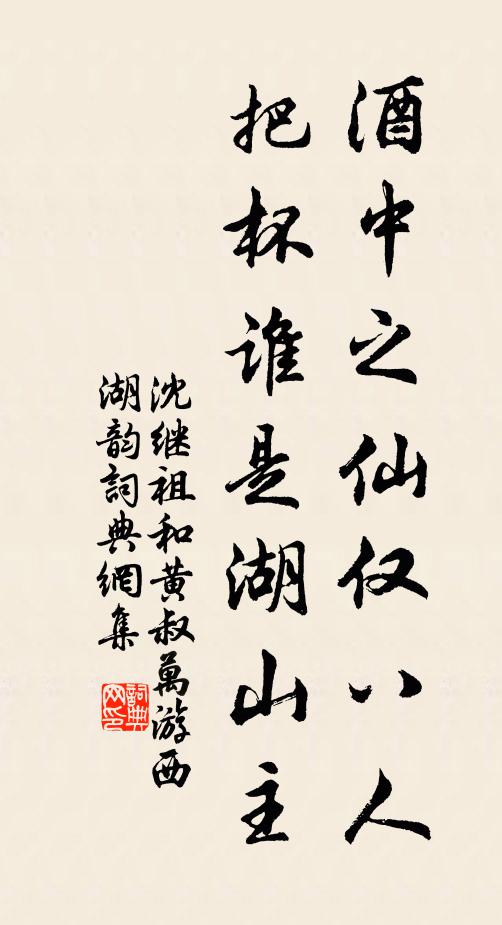 酒中之仙仅八人
把杯谁是湖山主
沈继祖和黄叔萬游西
湖韵詞典網集
詞典网印